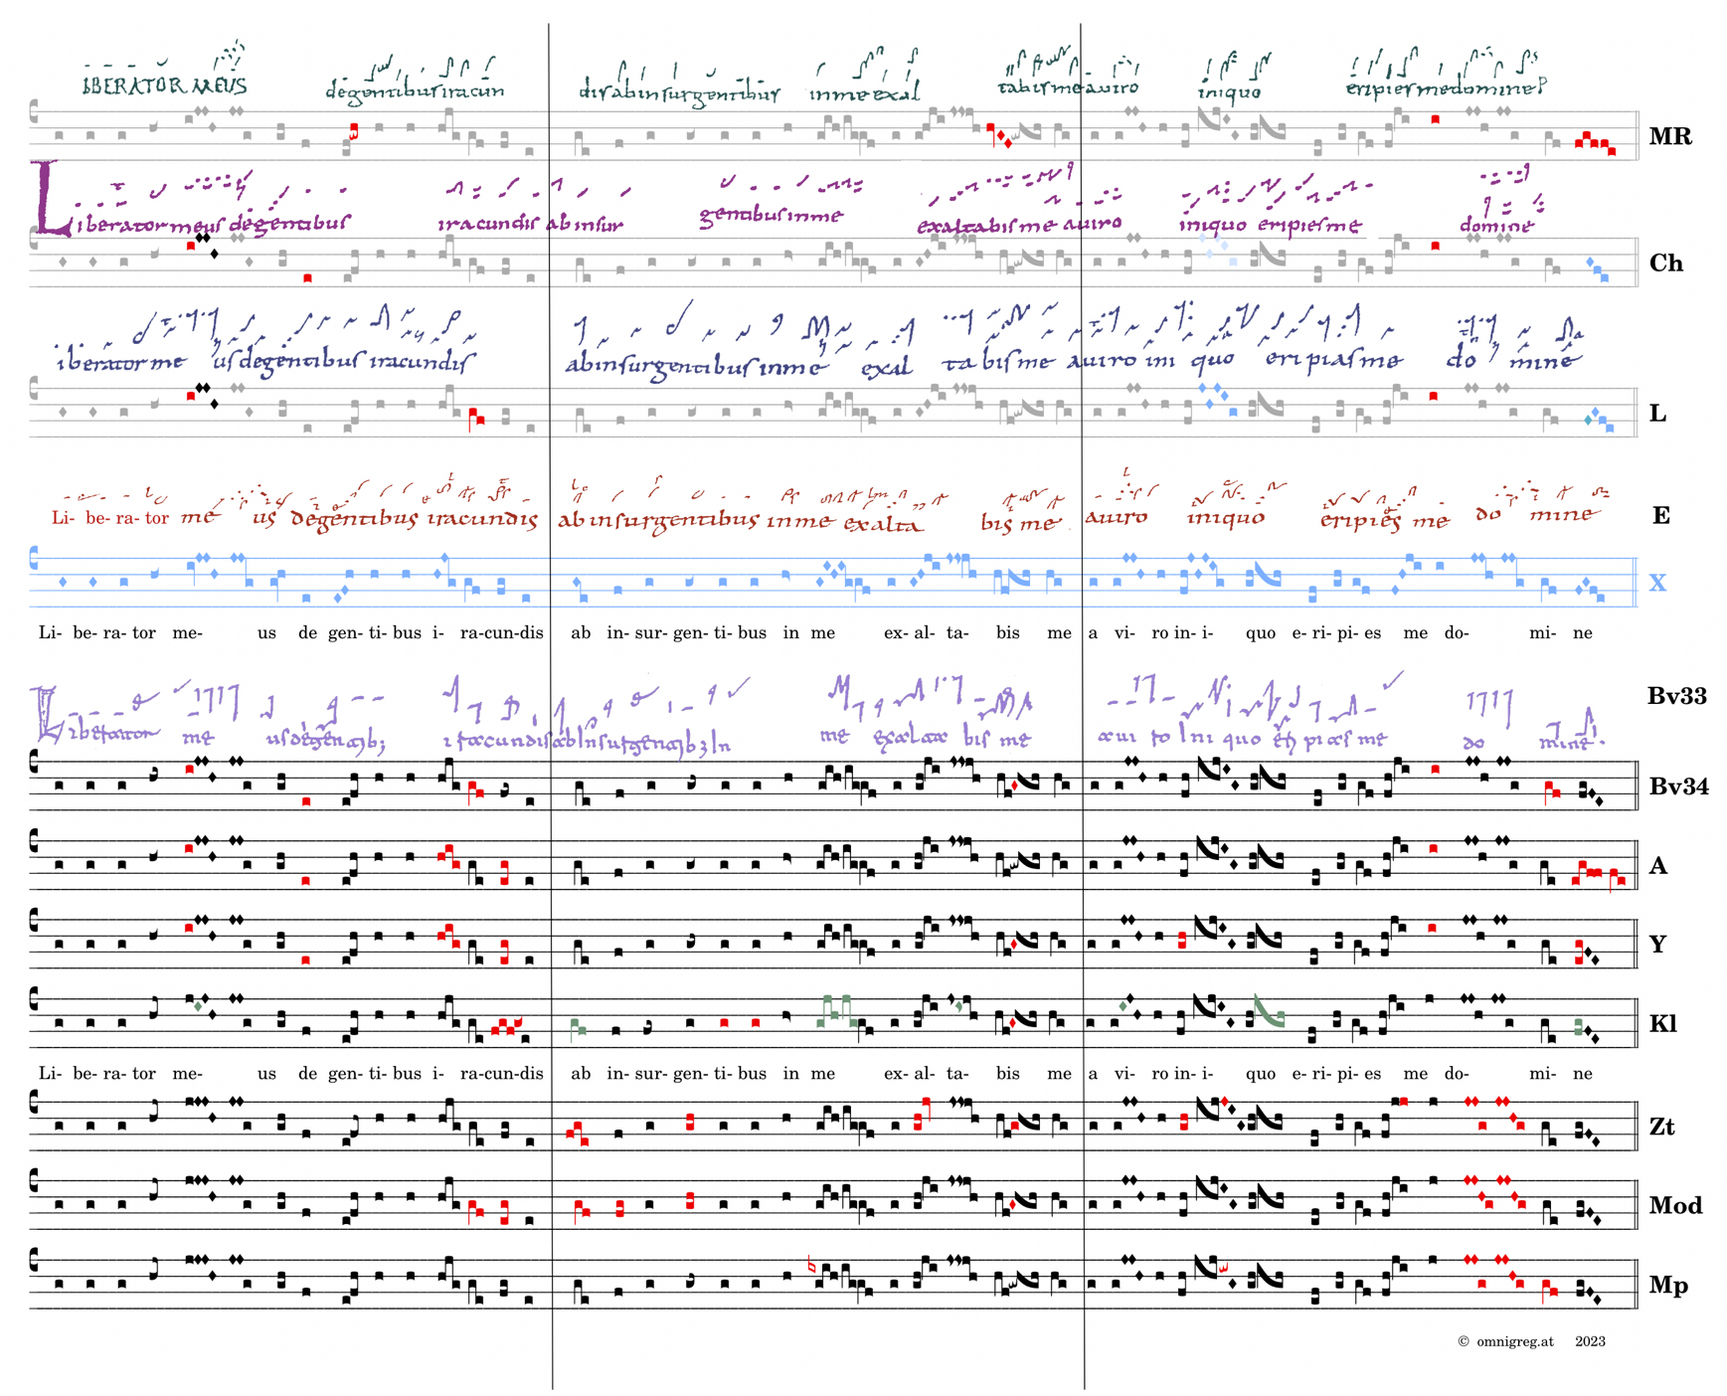 LIBERATOR MEUS degentibus iracun dis ab insurgentibus inme exal tabis me auiro iniquo eripies me domine
MR
Liberator meus degentibus iracundis ab insur gentibus inme exaltabis me auiro iniquo eripies me domine
Ch
iberator me us degentibus iracundis ab insurgentibus inme exal ta bis me auiro ini quo eripias me do mine
L
Li- be- ra- tor me us degentibus iracundis ab insurgentibus inme exalta bis me auiro iniquo eripies me do mine
E
X
Li- be- ra- tor me- us de gen- ti- bus i- ra-cun-dis ab in- sur- gen- ti- bus in me ex- al- ta- bis me a vi- ro in- i- quo e- ri- pi- es me do- mi- ne
Bv33
Bv34
A
Y
Kl
Li- be- ra- tor me- us de gen- ti- bus i- ra-cun-dis ab in- sur- gen- ti- bus in me ex- al- ta- bis me a vi- ro in- i- quo e- ri- pi- es me do- mi- ne
Zt
Mod
Mp
© omnigreg.at 2023